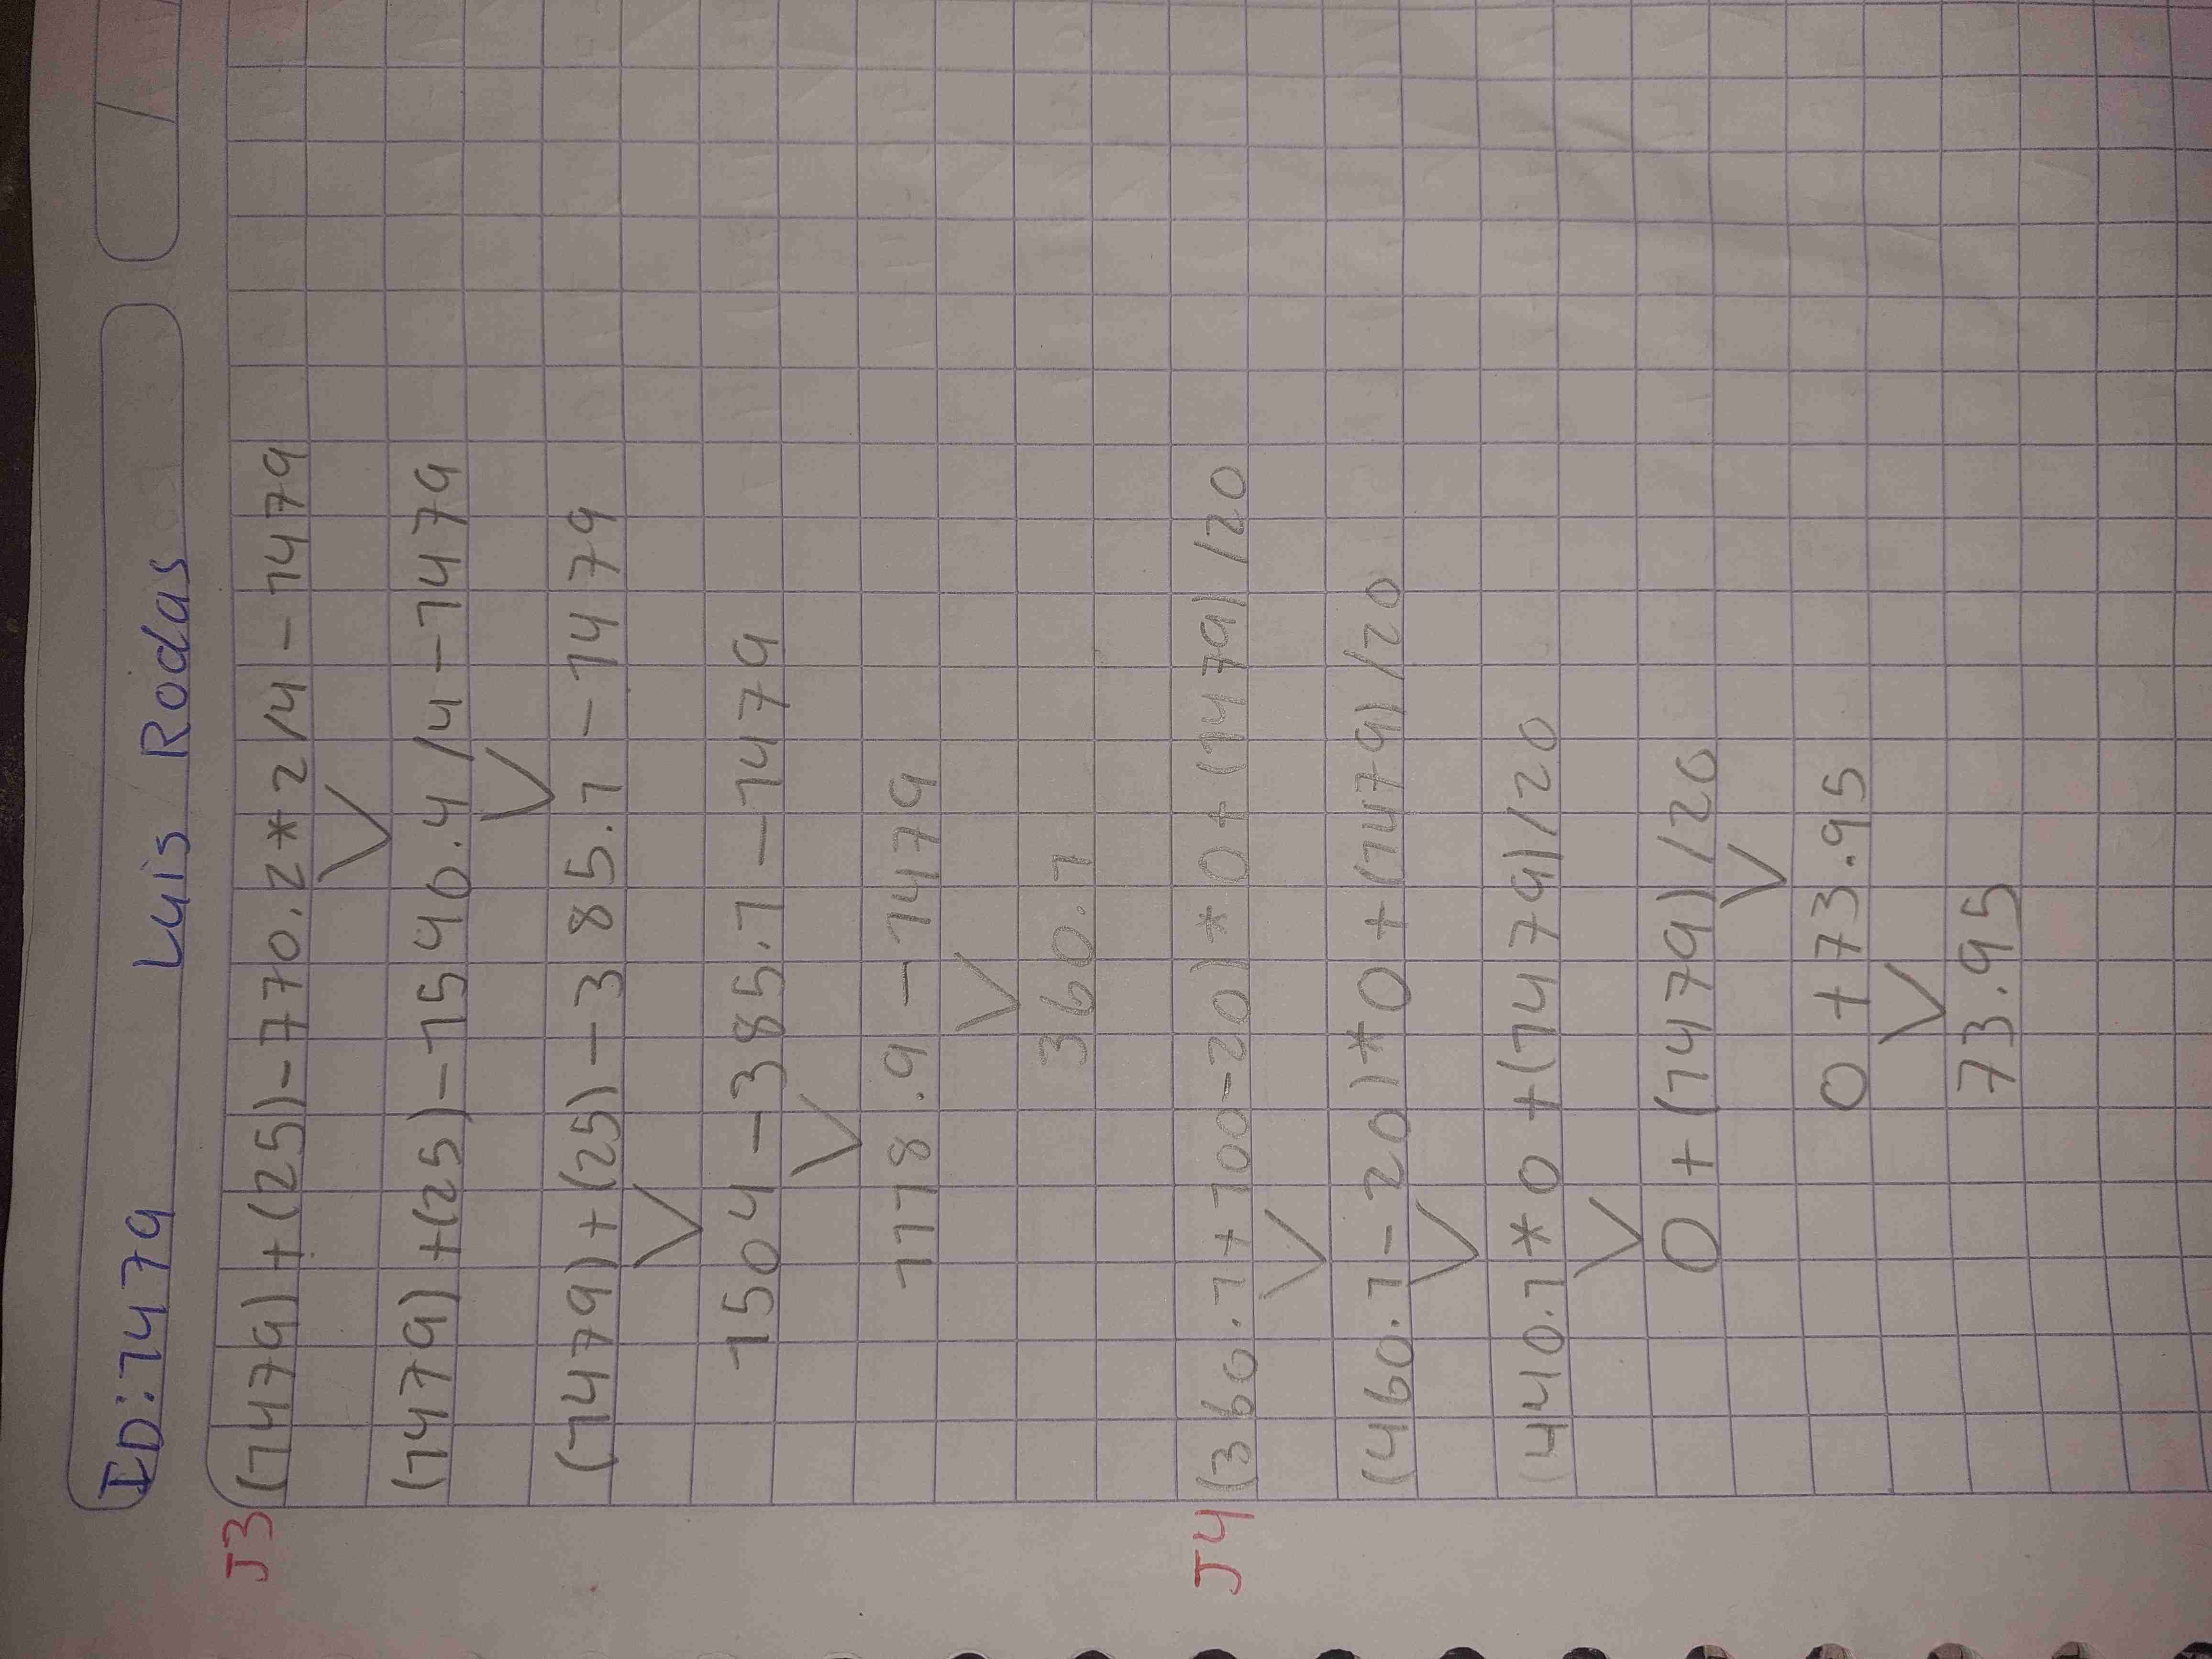 ID:1479 Luis Rodas
J3 (1479)+(25)-770.2*2/4-1479
(1479)+(25)-1540.4/4-1479
(1479)+(25)-385.1-1479
1504-385.1-1479
1118.9-1479
360.1
J4 (360.1+100-20)*0+(1479)/20
(460.1-20)*0+(1479)/20
(440.1*0+(1479)/20
0+(1479)/20
0+73.95
73.95